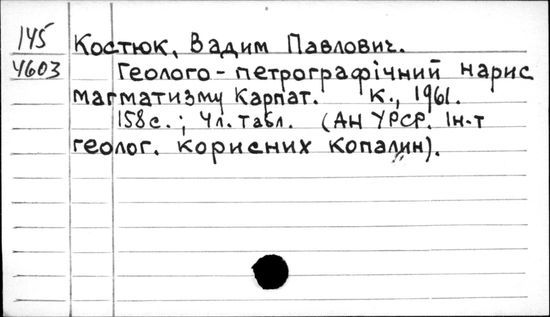 145 Костюк, Вадим Павлович.
4603 Геолого-петрографічний нарис
магматизму Карпат. К., 1961.
158с.; 4л. табл. (АН УРСР. Ін-т
геолог. корисних копалин).